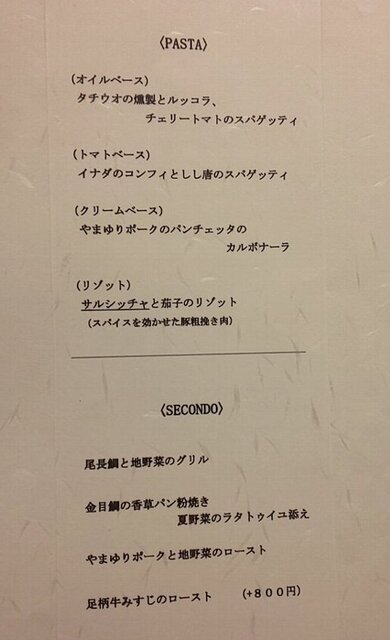 〈PASTA〉
（オイルベース）
タチウオの燻製とルッコラ、
チェリートマトのスパゲッティ
（トマトベース）
イナダのコンフィとしし唐のスパゲッティ
（クリームベース）
やまゆりポークのパンチェッタの
カルボナーラ
（リゾット）
サルシッチャと茄子のリゾット
（スパイスを効かせた豚粗挽き肉）
〈SECONDO〉
尾長鯛と地野菜のグリル
金目鯛の香草パン粉焼き
夏野菜のラタトゥイユ添え
やまゆりポークと地野菜のロースト
足柄牛みすじのロースト （+８００円）